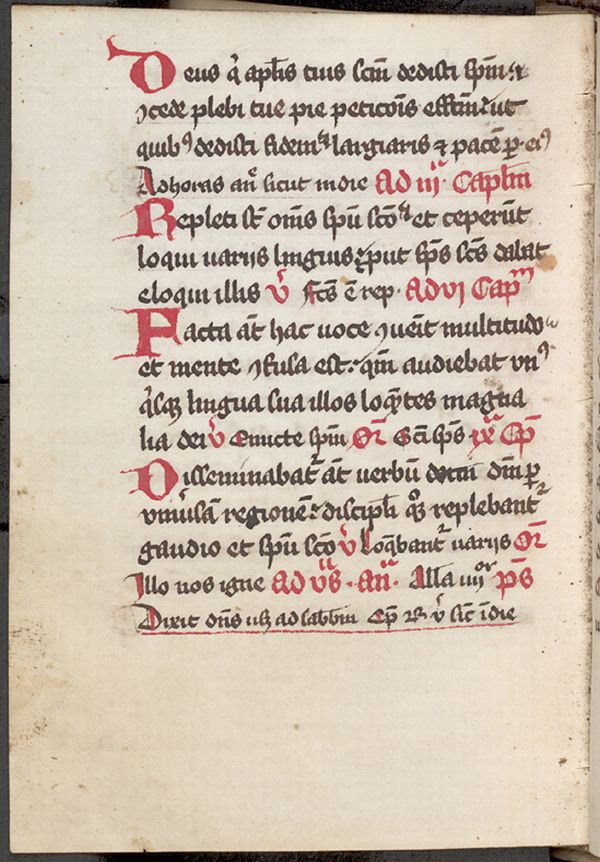 Deus q̄ aplis tuis scm̄ dedisti spm̄ ⁊
ↄcede plebi tue pie peticōis effcm̄ ut
quibꝰ dedisti fidem ⁊ largiaris ⁊ pacē p̄ eiꝰ
Ad horas an̄ sicut in die Ad iii Caplm̄
Repleti st̄ om̄s spū scō ⁊ et ceperūt
loqui uarijs linguis put sps̄ scs̄ dabat
eloqui illis v̄ Fcs̄ ē rep Ad vi Cap̄m
Facta aūt hac uoce ↄuenit multitudo
et mente ↄfusa est qm̄ audiebat vnꝰ
qͥsqꝫ lingua sua illos loq̄ntes magna
lia dei v̄ Emicte spm̄ Or̄ Scī sps̄ ix Cp̄
Disseminabat̄ aūt verbū dn̄i p̄
vniūsam regionē discipli qͦꝫ replebant̄
gaudio et spū scō v̄ loq̄bant̄ uarijs Or̄
Illo nos igne Ad vs̄ an̄ Alla iiiiᵒʳ ps̄
Dixit dn̄s usqꝫ ad sabbm̄ Cp̄ R̄ v̄ sic̄ ī die